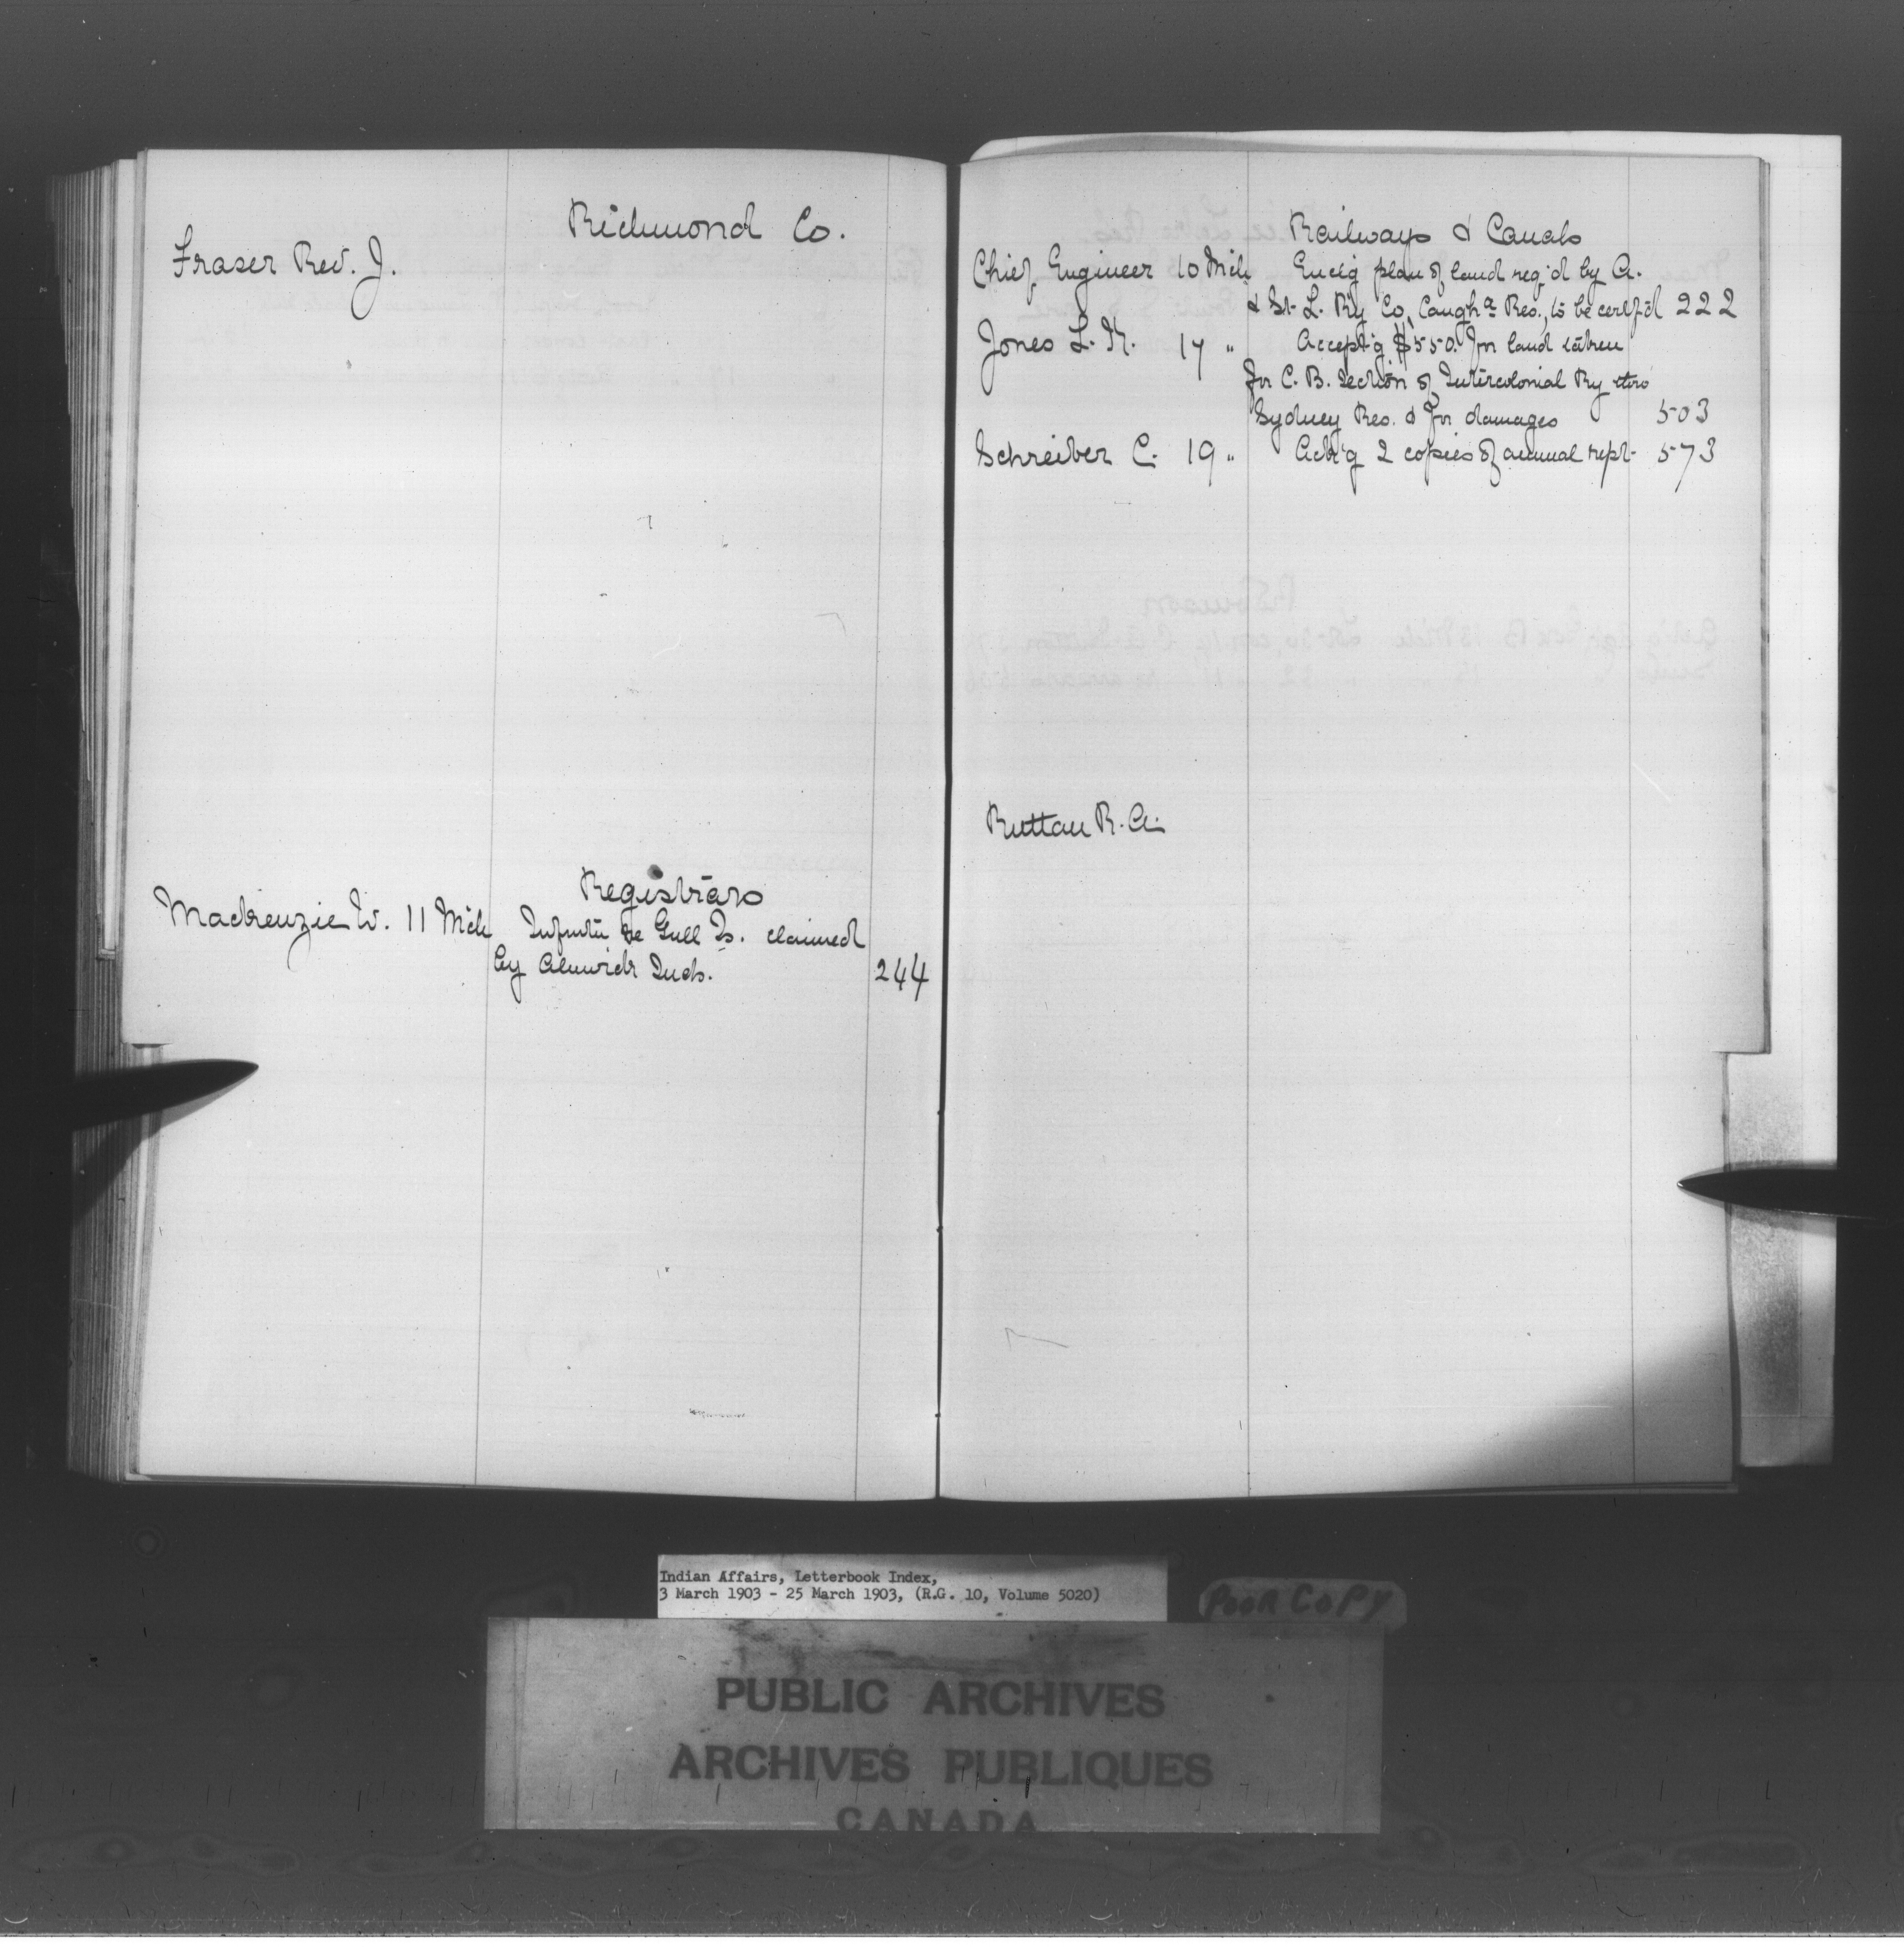 Richmond Co.
Fraser Rev. J.
Registrars
Mackenzie W. 11 Mch Infmtn re Gull Is. claimed
by Alnwick Inds. 244
Railways & Canals
Chief Engineer 10 Mch Enclg plan of land req'd by A.
& St. L. Ry Co, Caugh^a Res., to be certf'd 222
Jones L. K. 17 " Accept'g $550. for land taken
for C. B. Section of Intercolonial Ry thro
Sydney Res. & for damages 503
Schreiber C. 19 " Ack'g 2 copies of annual rept. 573
Ruttan R. A.
Indian Affairs, Letterbook Index,
3 March 1903 - 25 March 1903, (R.G. 10, Volume 5020)
POOR COPY
PUBLIC ARCHIVES
ARCHIVES PUBLIQUES
CANADA